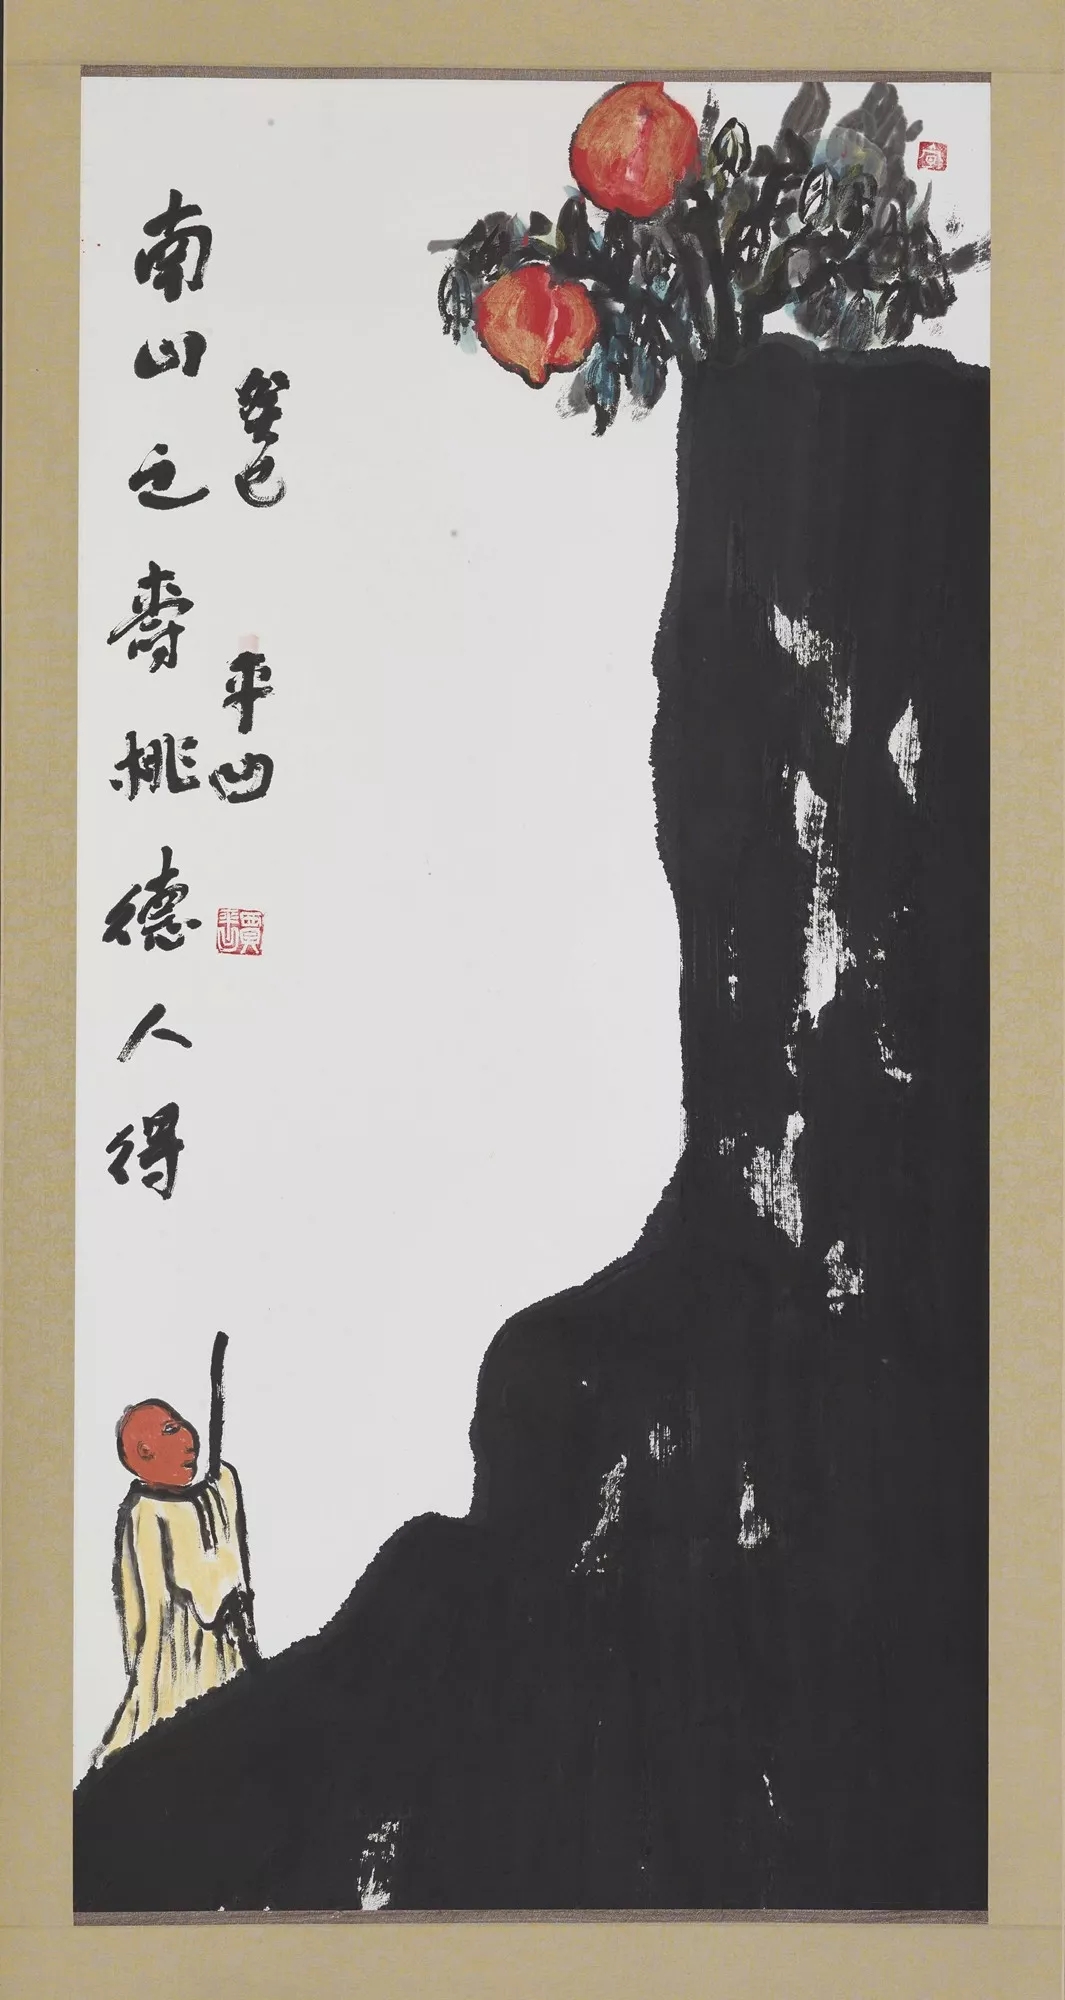 南山之壽桃德人得
癸巳 平凹
賈平凹